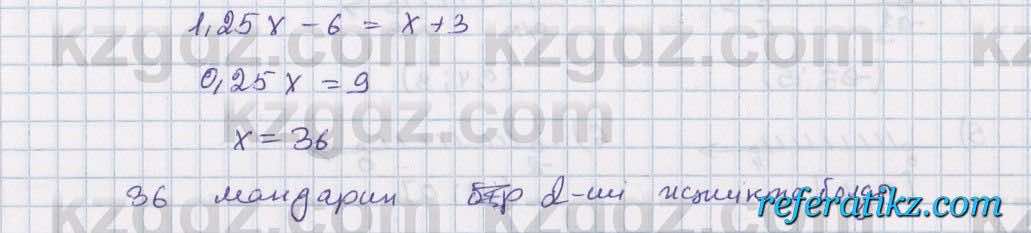 kzgdz.com kzgdz.com kzgdz.com
1,25x - 6 = x + 3
0,25x = 9
kzgdz.com
x = 36
36 мандарин 2-ші
referatikz.com